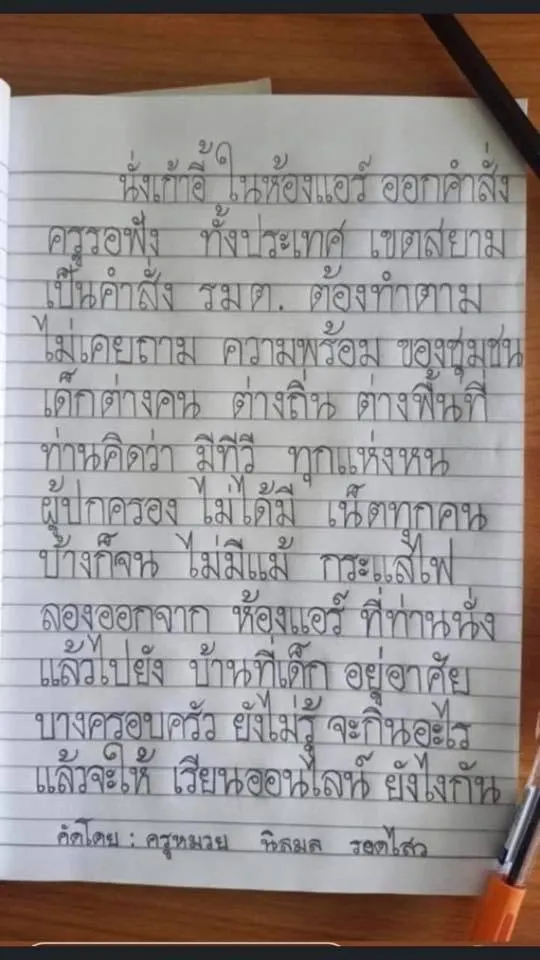 นั่งเก้าอี้ ในห้องแอร์ ออกคำสั่ง
ครูรอฟัง ทั้งประเทศ เขตสยาม
เป็นคำสั่ง รมต. ต้องทำตาม
ไม่เคยถาม ความพร้อม ของชุมชน
เด็กต่างคน ต่างถิ่น ต่างพื้นที่
ท่านคิดว่า มีทีวี ทุกแห่งหน
ผู้ปกครอง ไม่ได้มี เน็ตทุกคน
บ้างก็จน ไม่มีแม้ กระแสไฟ
ลองออกจาก ห้องแอร์ ที่ท่านนั่ง
แล้วไปยัง บ้านที่เด็ก อยู่อาศัย
บางครอบครัว ยังไม่รู้ จะกินอะไร
แล้วจะให้ เรียนออนไลน์ ยังไงกัน
คัดโดย : ครูหมวย นิสมล รอดไสว